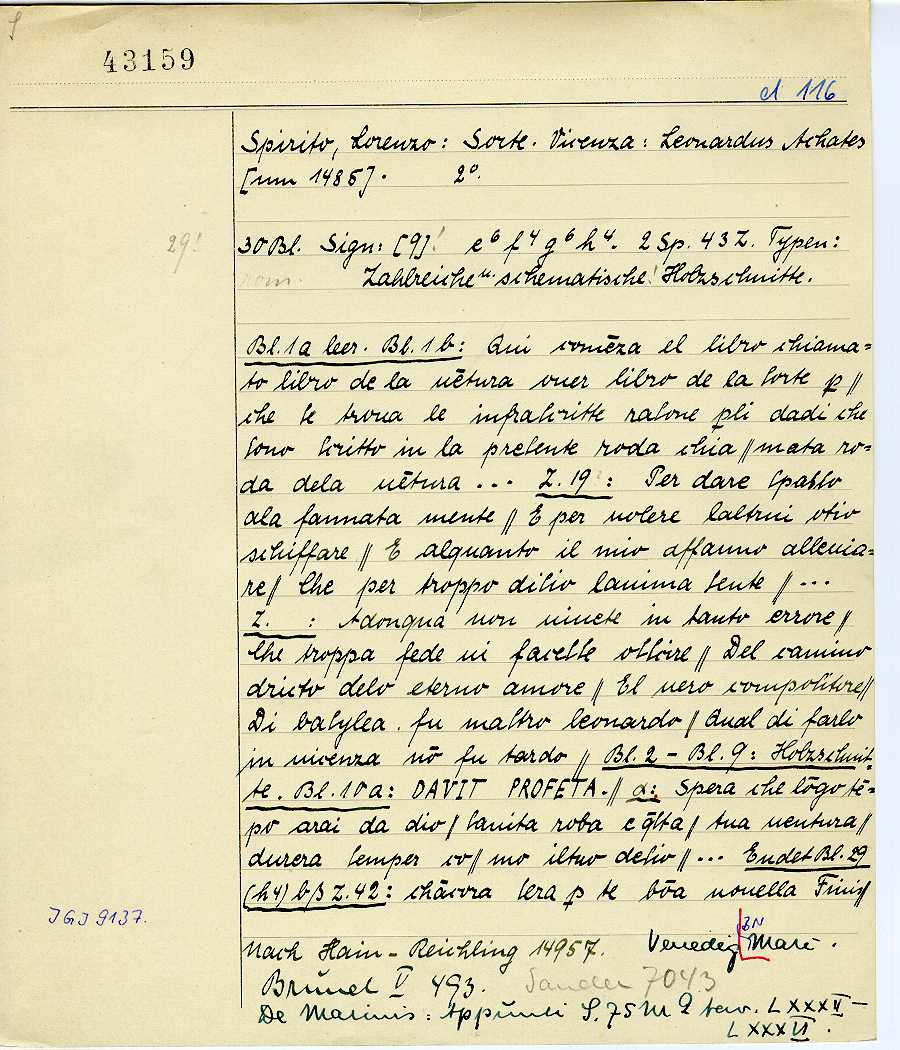 43159
cl 116
Spirito, Lorenzo: Sorte. Vicenza: Leonardus Achates
[um 1485]. 2°.
29!
30 Bl. Sign: [9]! e⁶ f⁴ g⁶ h⁴. 2 Sp. 43 Z. Typen:
rom. Zahlreiche u. schematische! Holzschnitte.
Bl. 1a leer. Bl. 1b: Qui comēza el libro chiama=
to libro de la uētura ouer libro de la ſorte p̱ //
che ſe troua le infraſcritte raſone pli dadi che
ſono ſcritto in la preſente roda chia // mata ro=
da dela uētura ... Z. 19: Per dare ſpaſſo
ala fannata mente // E per uolere laltrui otio
schiffare // E alquanto il mio affanno alleuia=
re // Che per troppo diſio lanima ſente // ...
Z. : Adonqua non uiuete in tanto errore //
Che troppa fede ui faceſſe // Del camino
dricto delo eterno amore // El uero compoſitore //
Di baſylea. fu maſtro leonardo / Qual di farlo
in uicenza nō fu tardo // Bl. 2 – Bl. 9: Holzschnit-
te. Bl. 10a: DAVIT PROFETA. // α: Spera che lōgo tē=
po arai da dio / ſanita roba e q̄ſta / tua uentura //
durera ſemper co // mo iltuo deſio // ... Endet Bl. 29
(h4) b β Z. 42: chācora ſera p̱ te bōa nouella Finis //
IGI 9137.
Nach Hain – Reichling 14957. Venedig BN Marc.
Brunet V 493. Sander 7043
De Marinis: Appunti S. 75 M 2 tav. LXXXV –
LXXXVI.